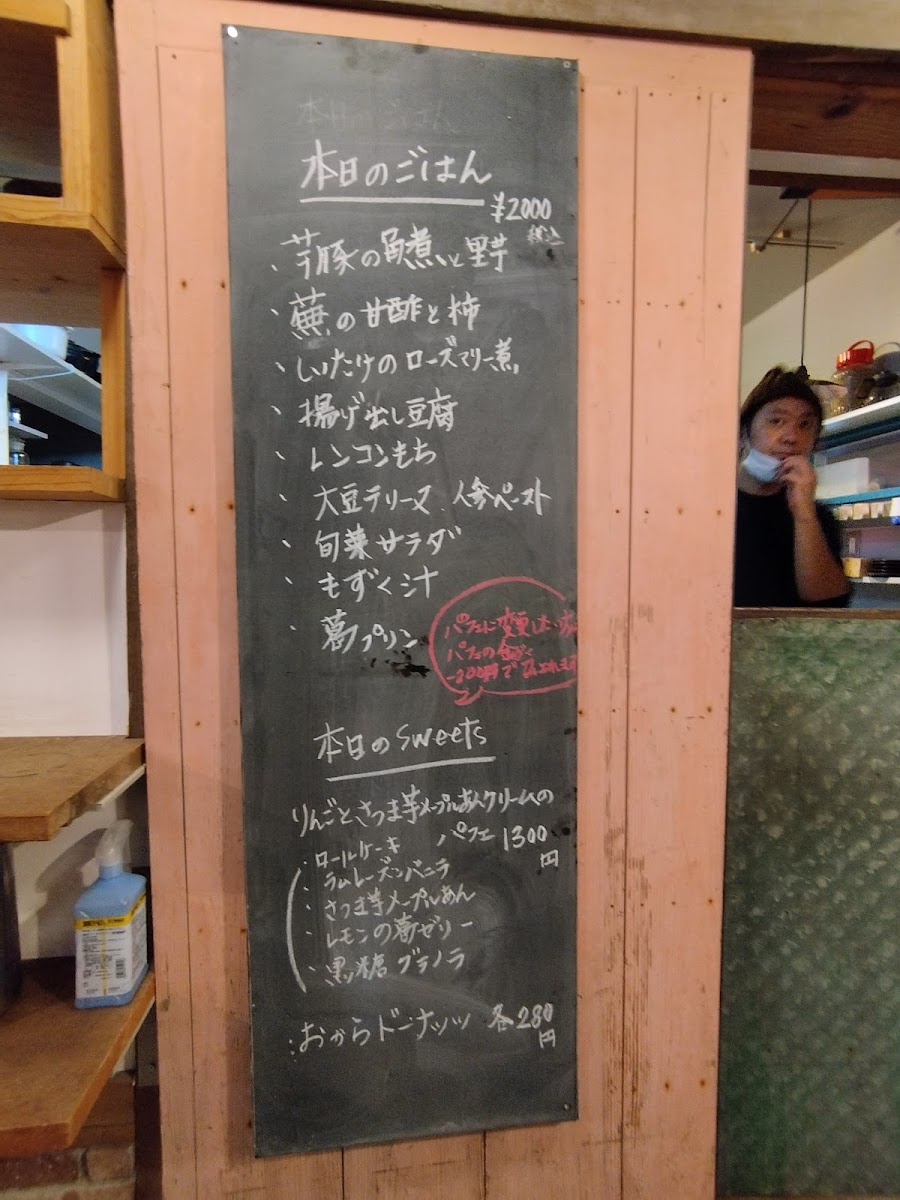 本日のごはん
本日のごはん
¥2000
税込
、芋豚の角煮と里芋
、蕪の甘酢と柿
、しいたけのローズマリー煮
、揚げ出し豆腐
、レンコンもち
、大豆テリーヌ 人参ペースト
、旬菜サラダ
、もずく汁
、葛プリン
パフェに変更したい方は
パフェの金がく
-200円で
本日のsweets
りんごとさつま芋メープルあんクリームの
パフェ 1300
円
・ロールケーキ
・ラムレーズンバニラ
・さつま芋メープルあん
・レモンの葛ゼリー
・黒糖グラノラ
:おからドーナッツ 各280
円